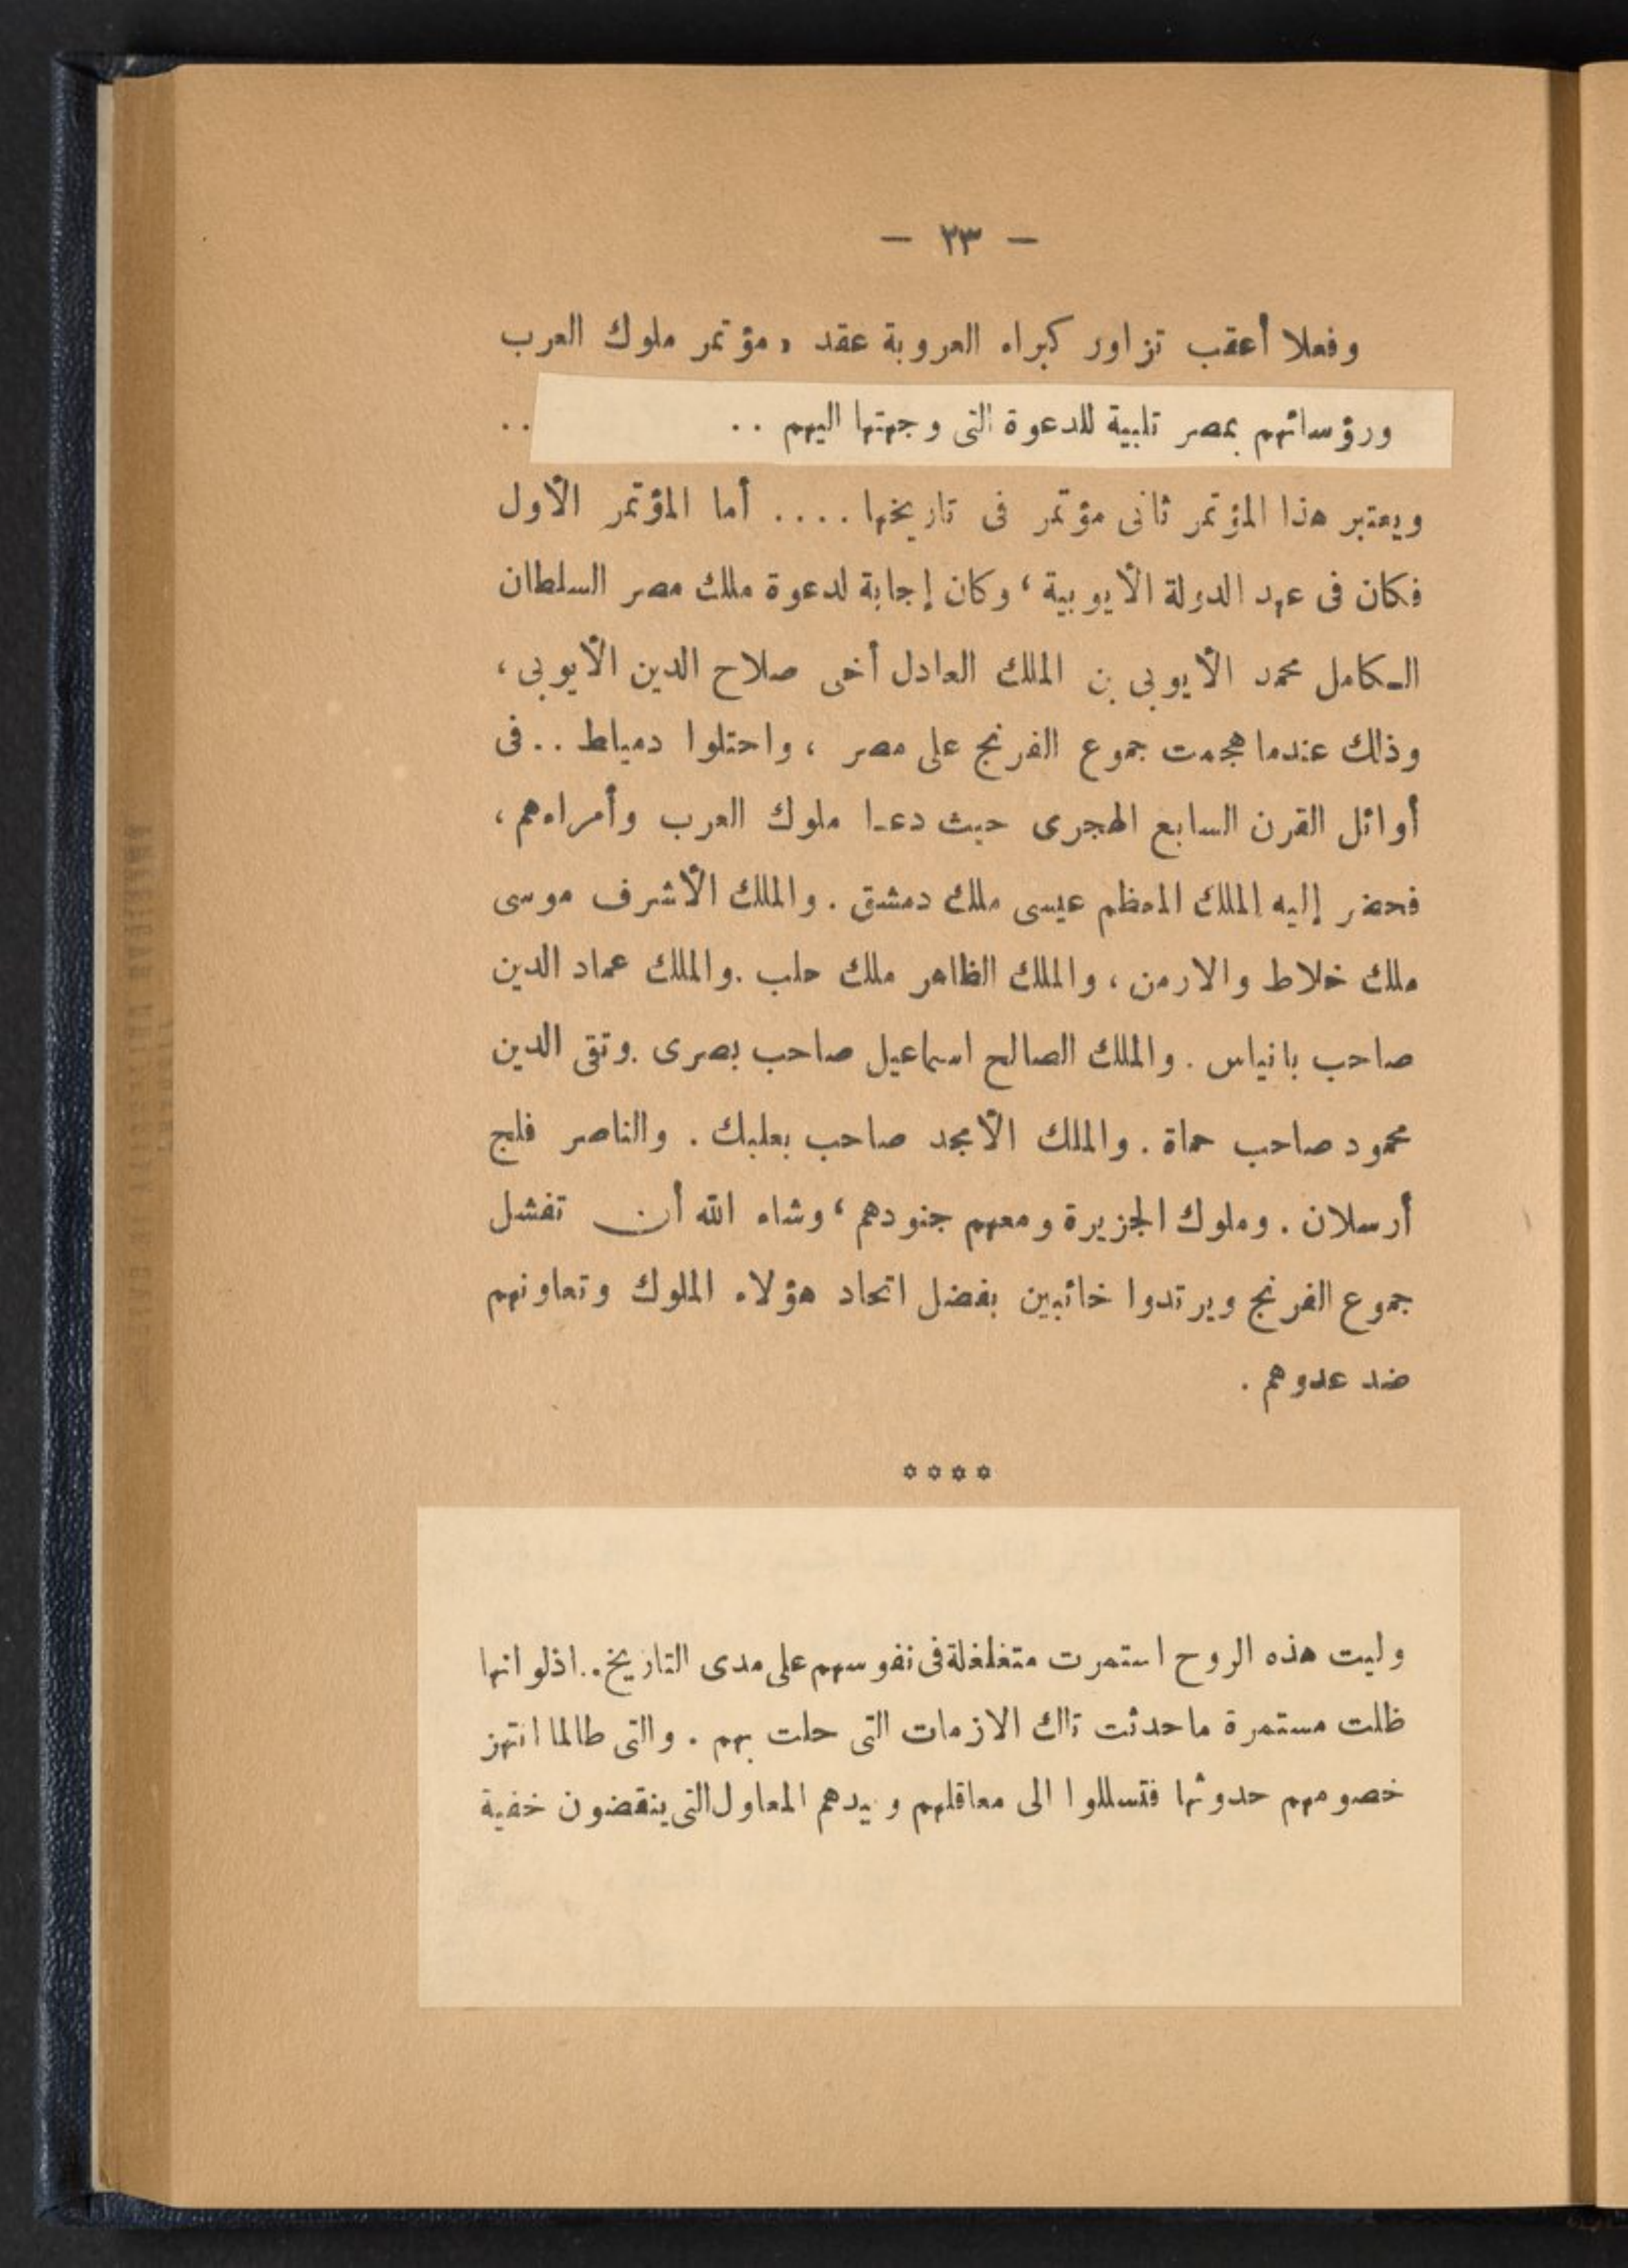 — ٢٣ —
وفعلا أعقب تزاور كبراء العروبة عقد «مؤتمر ملوك العرب
ورؤسائهم بمصر تلبية للدعوة التى وجهتها اليهم .. ..
ويعتبر هذا المؤتمر ثانى مؤتمر فى تاريخها .... أما المؤتمر الأول
فكان فى عهد الدولة الأيوبية ، وكان إجابة لدعوة ملك مصر السلطان
الـكامل محمد الأيوبى بن الملك العادل أخى صلاح الدين الأيوبى ،
وذلك عندما هجمت جموع الفرنج على مصر ، واحتلوا دمياط .. فى
أوائل القرن السابع الهجرى حيث دعـا ملوك العرب وأمراءهم ،
فحضر إليه الملك المعظم عيسى ملك دمشق . والملك الأشرف موسى
ملك خلاط والارمن ، والملك الظاهر ملك حلب . والملك عماد الدين
صاحب بانياس . والملك الصالح اسماعيل صاحب بصرى . وتقى الدين
محمود صاحب حماة . والملك الأمجد صاحب بعلبك . والناصر فلج
أرسلان . وملوك الجزيرة ومعهم جنودهم ، وشاء الله أن تفشل
جموع الفرنج ويرتدوا خائبين بفضل اتحاد هؤلاء الملوك وتعاونهم
ضد عدوهم .
✡✡✡✡
وليت هذه الروح استمرت متغلغلة فى نفوسهم على مدى التاريخ .. اذ لو انها
ظلت مستمرة ما حدثت تلك الازمات التى حلت بهم . والتى طالما انتهز
خصومهم حدوثها فتسللوا الى معاقلهم وبيدهم المعاول التى ينقضون خفية